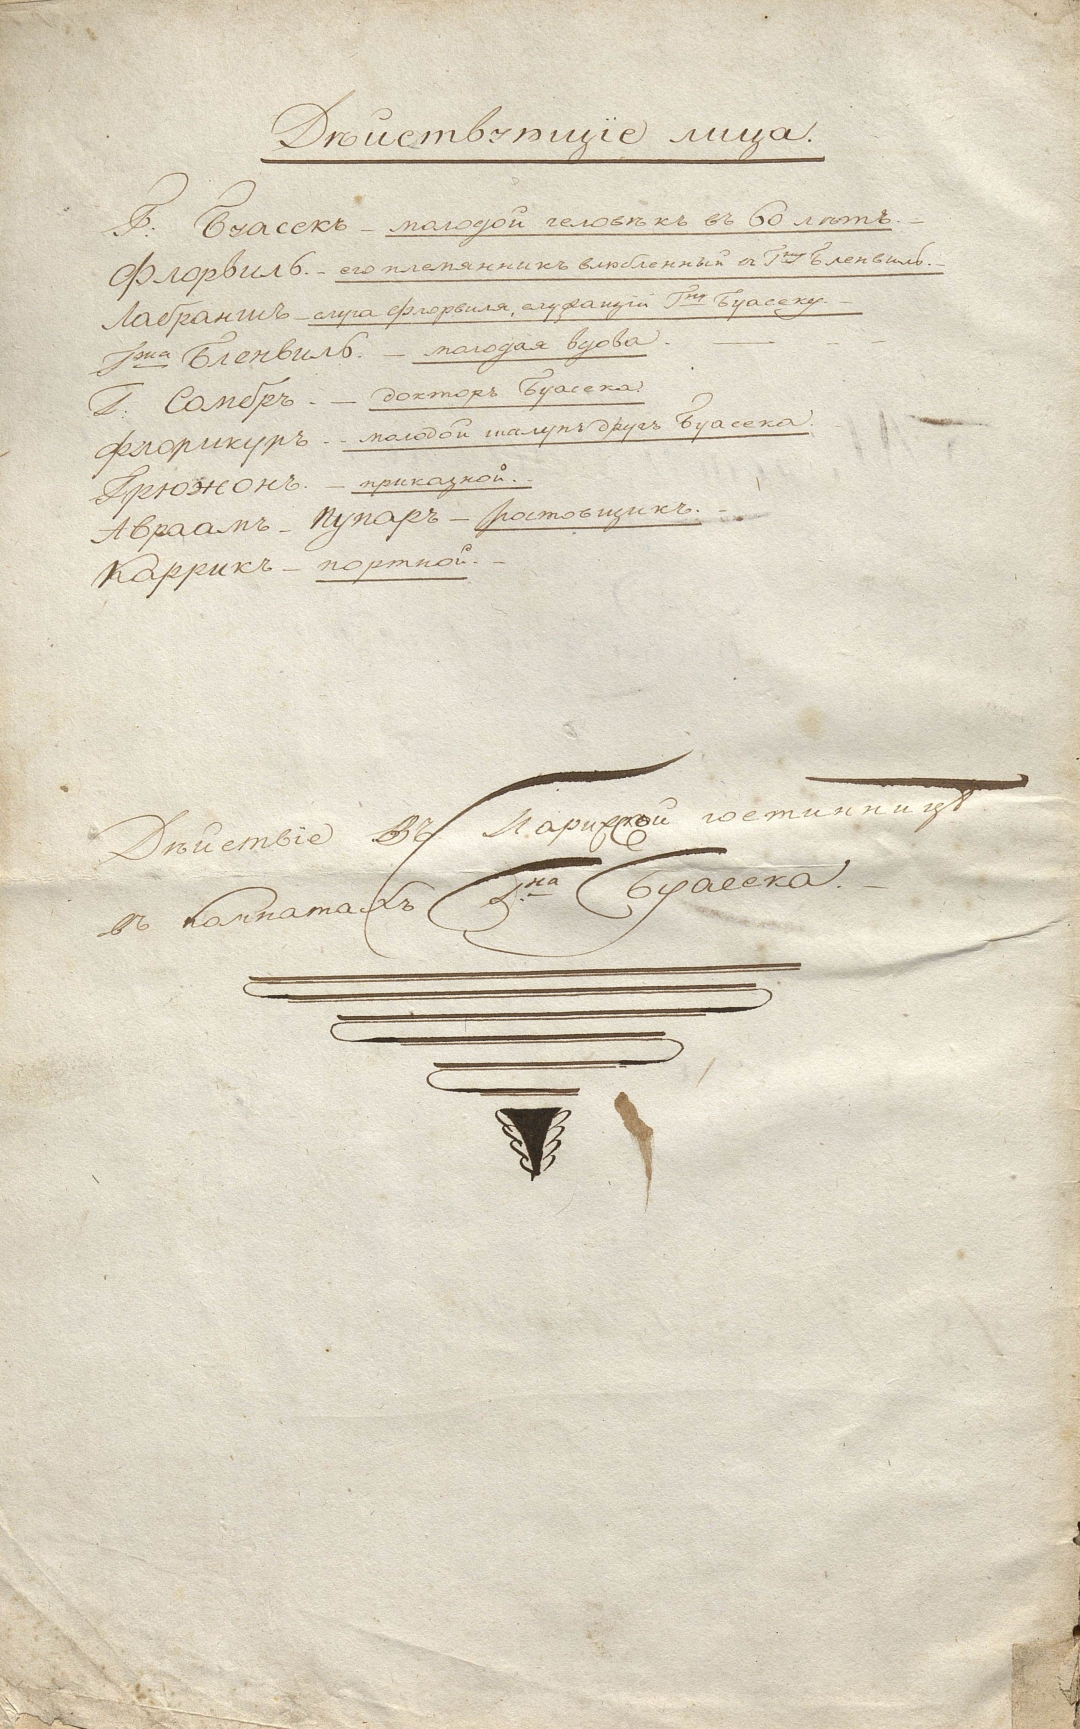 Дѣйствующіе лица.
Г: Буасекъ – молодой человѣкъ въ 60 лѣтъ. –
Флорвиль. – его племянникъ влюбленный въ Гжу Бленвиль. –
Лабраншъ – слуга Флорвиля, служащій Гну Буасеку. –
Гжа Бленвиль. – молодая вдова.
Г: Сомбръ. – докторъ Буасека.
Флорикуръ. – молодой шалунъ другъ Буасека.
Грюжонъ. – приказной. –
Авраамъ – Пупаръ – ростовщикъ. –
Каррикъ – портной. –
Дѣйствіе въ Парижской гостинницѣ
въ комнатахъ Г:на Буасека. –